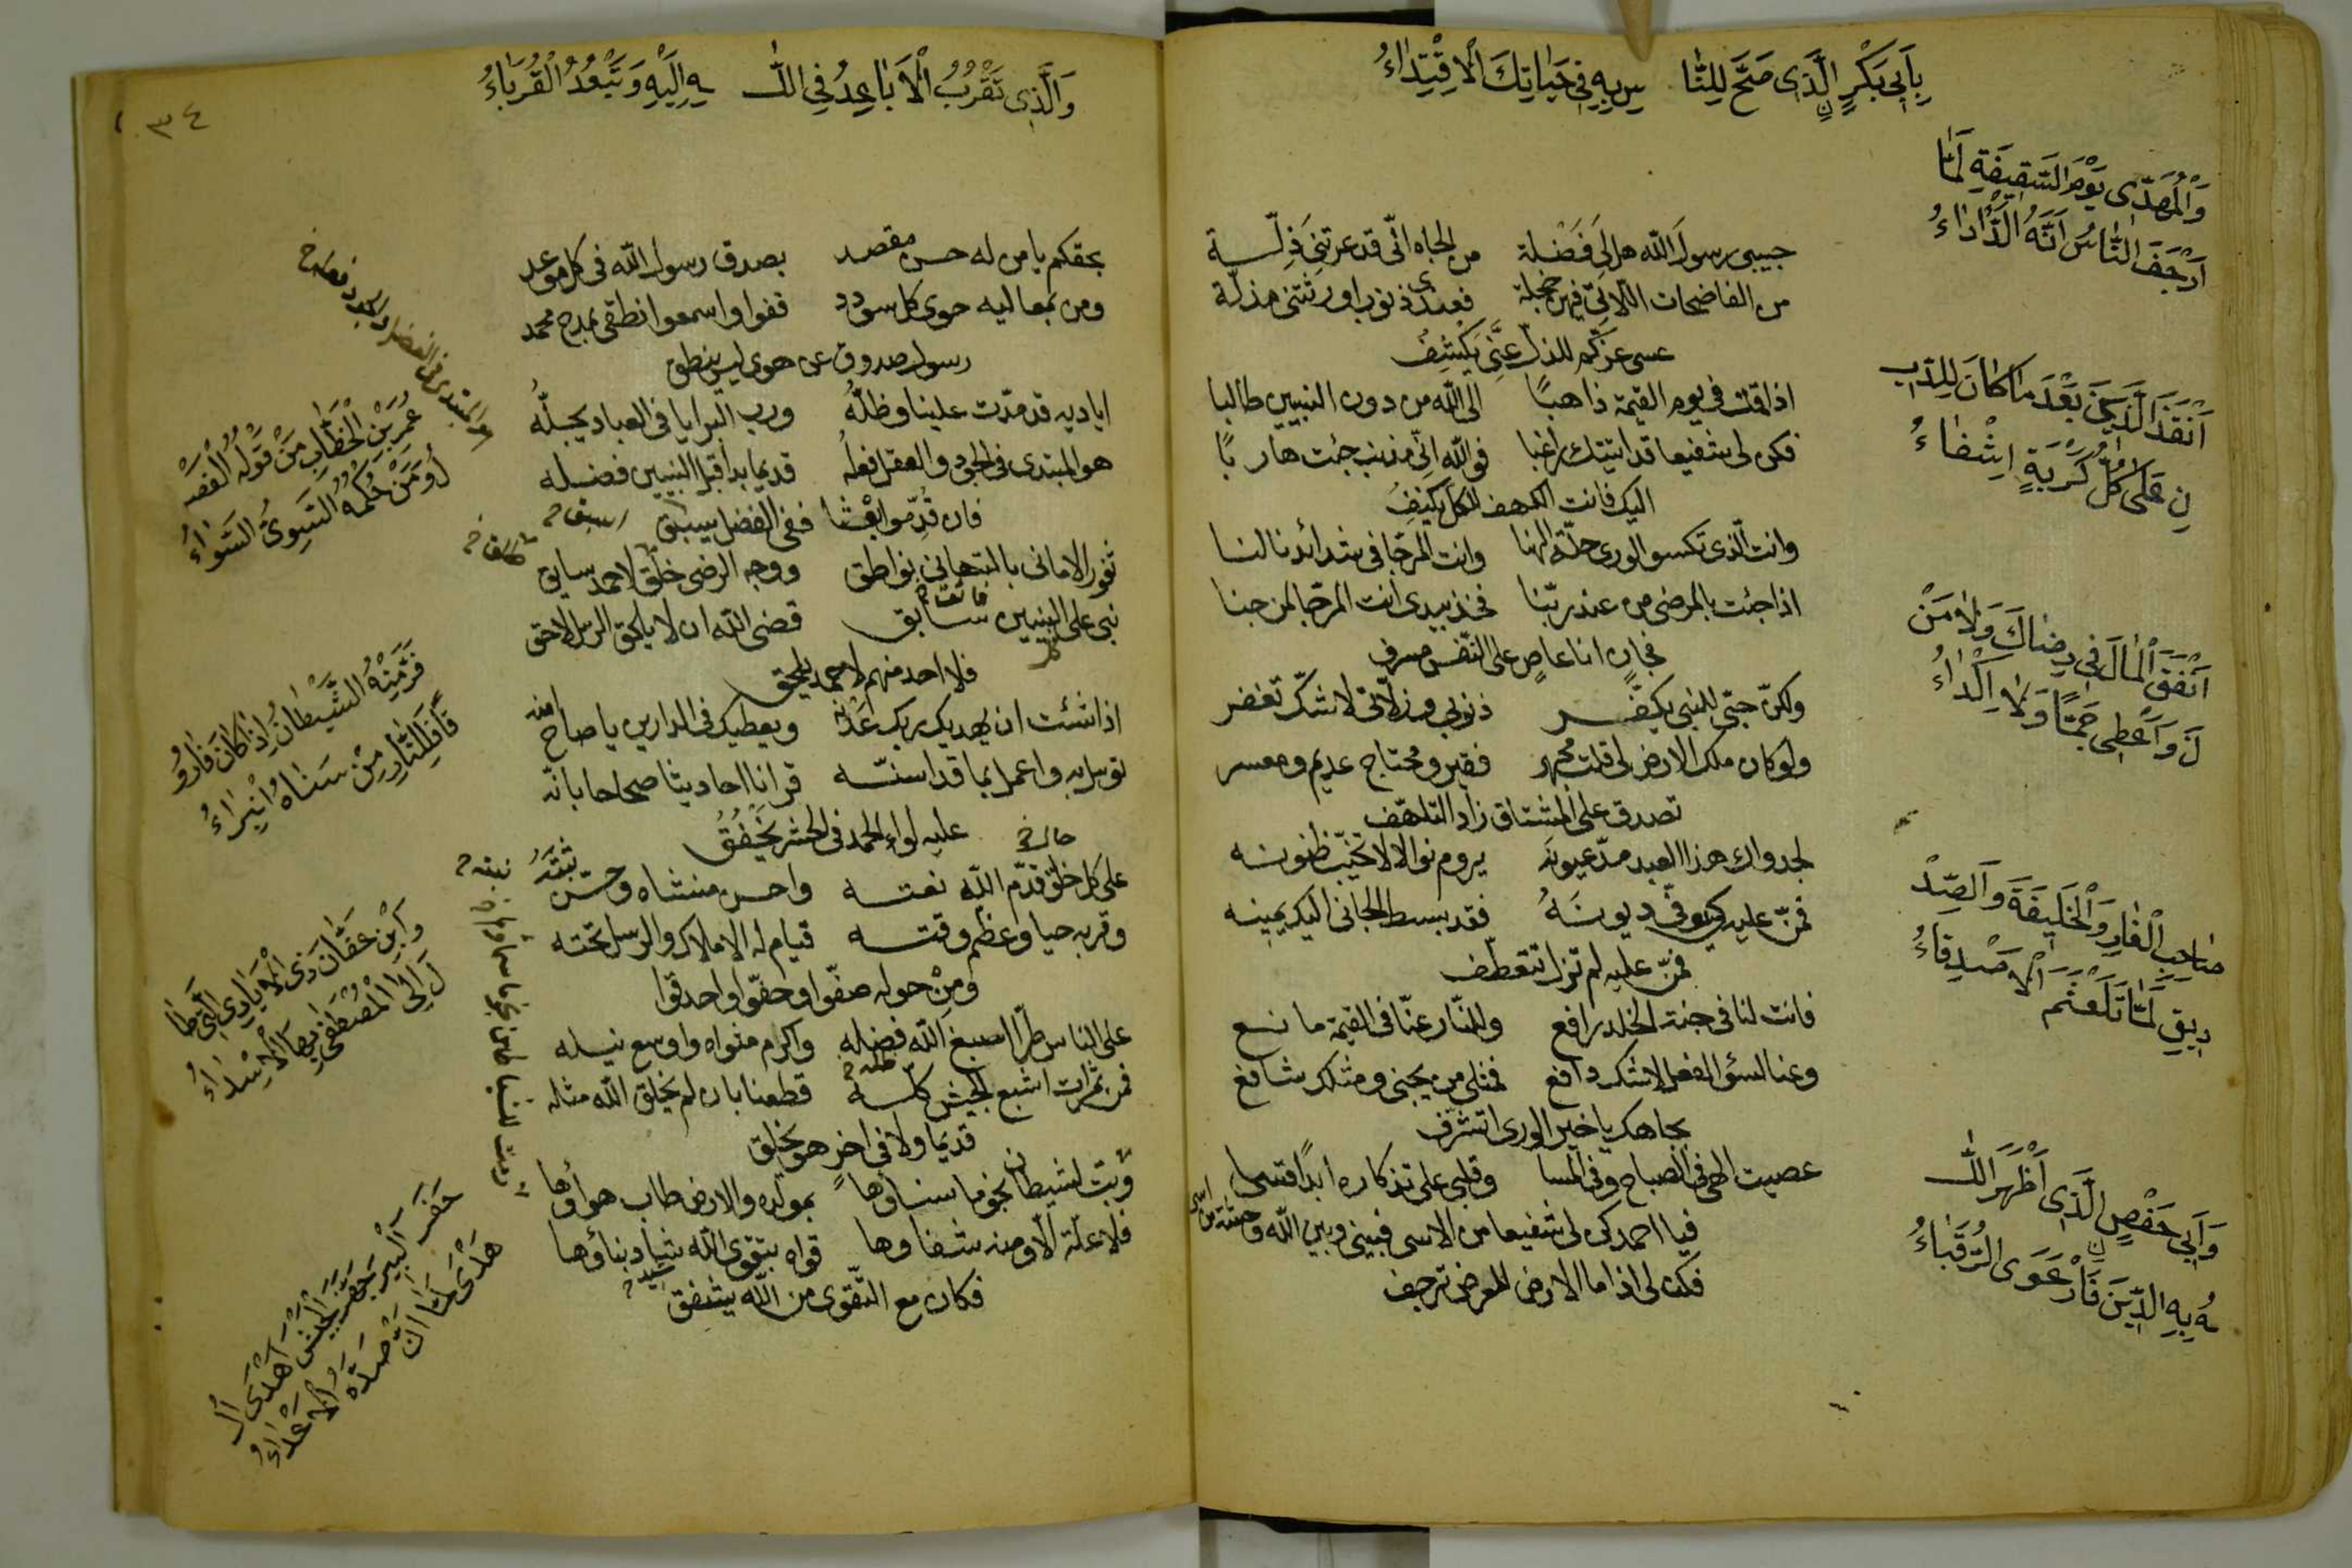 بِاَبِى بَكْرٍ الَّذِى صَحَّ لِلنَّا سِ بِهِ فِى حَيَاتِكَ الْاِقْتِدَاءُ
وَالْمُهَدِّى يَوْمَ السَّقِيفَةِ لَمَّا
اَرْجَفَ النَّاسُ اَنَّهُ الدَّاْدَاءُ
اَنْقَذَ الدِّينَ بَعْدَ مَا كَانَ لِلدِّيـ
نِ عَلَى كُلِّ كُرْبَةٍ اِشْفَاءُ
اَنْفَقَ الْمَالَ فِى رِضَاكَ وَلَا مَنْـ
نَ وَاَعْطٰى جَمًّا وَلَا اِكْدَاءُ
صَاحِبِ الْغَارِ وَالْخَلِيفَةِ وَالصِّدْ
دِيقِ لَمَّا تَلَعْثَمَ الْاَصْدِقَاءُ
وَاَبِى حَفْصٍ الَّذِى اَظْهَرَ اللّٰـ
ـهُ بِهِ الدِّينَ فَارْعَوَى الرُّقَبَاءُ
حبيبى رسول الله هل لى فضلة من الجاه انى قد عرتنى ذلة
من الفاضحات اللاتى فيهن خجلة فعندى ذنوب اورثتنى مذلة
عسى عزكم للذل عنى يكشف
اذا قلت فى يوم القيمة ذاهبًا الى الله من دون النبيين طالبا
فكن لى شفيعا قد اتيتك راغبا فوالله انى مذنب جئت هاربًا
اليك فانت الكهف للكل يكنف
وانت الذى تكسو الورى حلة الهنا وانت المرجا فى شدائدنا لنا
اذا جئت بالمرضى من عند ربنا فخذ بيدى انت المرجا لمن جنا
فجان انا عاص على النفس مسرف
ولكن حبى للنبى يكفر ذنوبى وزلاتى لاشك تغفر
ولو كان ملك الارض لى قلت مجهر فقير ومحتاج عديم ومعسر
تصدق على المشتاق زاد التلهف
لجدواك هذا العبد مد عيونه يروم نوالا لا تخيب ظنونه
فمن عليه كى يوفى ديونه فقد بسط الجانى اليك يمينه
فمن عليه لم تزل تتعطف
فانت لنا فى جنة الخلد رافع وللنار عنا فى القيمة مانع
وعنا لسؤ الفعل لاشك دافع فمثلى من يجنى ومثلك شافع
بجاهك يا خير الورى اتشرف
عصيت الهى فى الصباح وفى المسا وقلبى على تذكاره ابدًا قسى
فيا احمد كن لى شفيعا من الاسى فبينى وبين الله وحشة من اسى
فكن لى اذا ما الارض للعرض ترجف
وَالَّذِى تَقْرُبُ الْاَبَاعِدُ فِى اللّٰـ ـهِ اِلَيْهِ وَتَبْعُدُ الْقُرَبَاءُ
٣٤
عُمَرَ بْنِ الْخَطَّابِ مَنْ قَوْلُهُ الْفَصْـ
لُ وَمَنْ حُكْمُهُ السَّوِىُّ السَّوَاءُ
فَرَّ مِنْهُ الشَّيْطَانُ اِذْ كَانَ فَارُو
قًا فَلِلنَّارِ مِنْ سَنَاهُ انْبِرَاءُ
وَابْنِ عَفَّانَ ذِى الْاَيَادِى الَّتِى طَا
لَ اِلَى الْمُصْطَفٰى بِهَا الْاِسْدَاءُ
حَفَرَ الْبِيرَ جَهَّزَ الْجَيْشَ اَهْدَى الْـ
هَدْىَ لَمَّا اَنْ صَدَّهُ الْاَعْدَاءُ
بحقكم يا من له حسن مقصد بصدق رسول الله فى كل موعد
ومن بمعاليه حوى كل سودد قفوا واسمعوا نطقى بمدح محمد
رسول صدوق عن هوى ليس ينطق
اياديه قد مدت علينا وظله ورب البرايا فى العباد يجله
هو المبتدى فى الجود والعقل فعله قديما بدا قبل النبيين فضله
فان قدموا بعثا ففى الفضل يسبق
ثغور الامانى بالتهانى نواطق ووجه الرضى خلق لاحمد سابق
نبى على كل النبيين سابق قضى الله ان لا يلحق الرسل لاحق
فلا احد منهم لاحمد يلحق
اذا شئت ان يهديك ربك عدنه ويعطيك فى الدارين يا صاح منه
توسل به واعمل بما قد اسنه قرانا احاديثا صحاحا بانه
عليه لواء الحمد فى الحشر يخفق
على كل خلق قدم الله نعته واحسن منشاه وحسن نبته
وقربه حيا وعظم وقته قيام له الاملاك والرسل تحته
ومن حوله صفوا وحفوا واحدقوا
على الناس طرا اسبغ الله فضله واكرم مثواه واوسع نيله
فمن تمرات اشبع الجيش كله قطعنا بان لم يخلق الله مثله
قديما ولا فى اخر هو يخلق
وبث لشيطان نجوما سناوها بمولده والارض طاب هواوها
فلا علة الا ومنه شفاوها قواه بتقوى الله شيد بناؤها
فكان مع التقوى من الله يشفق